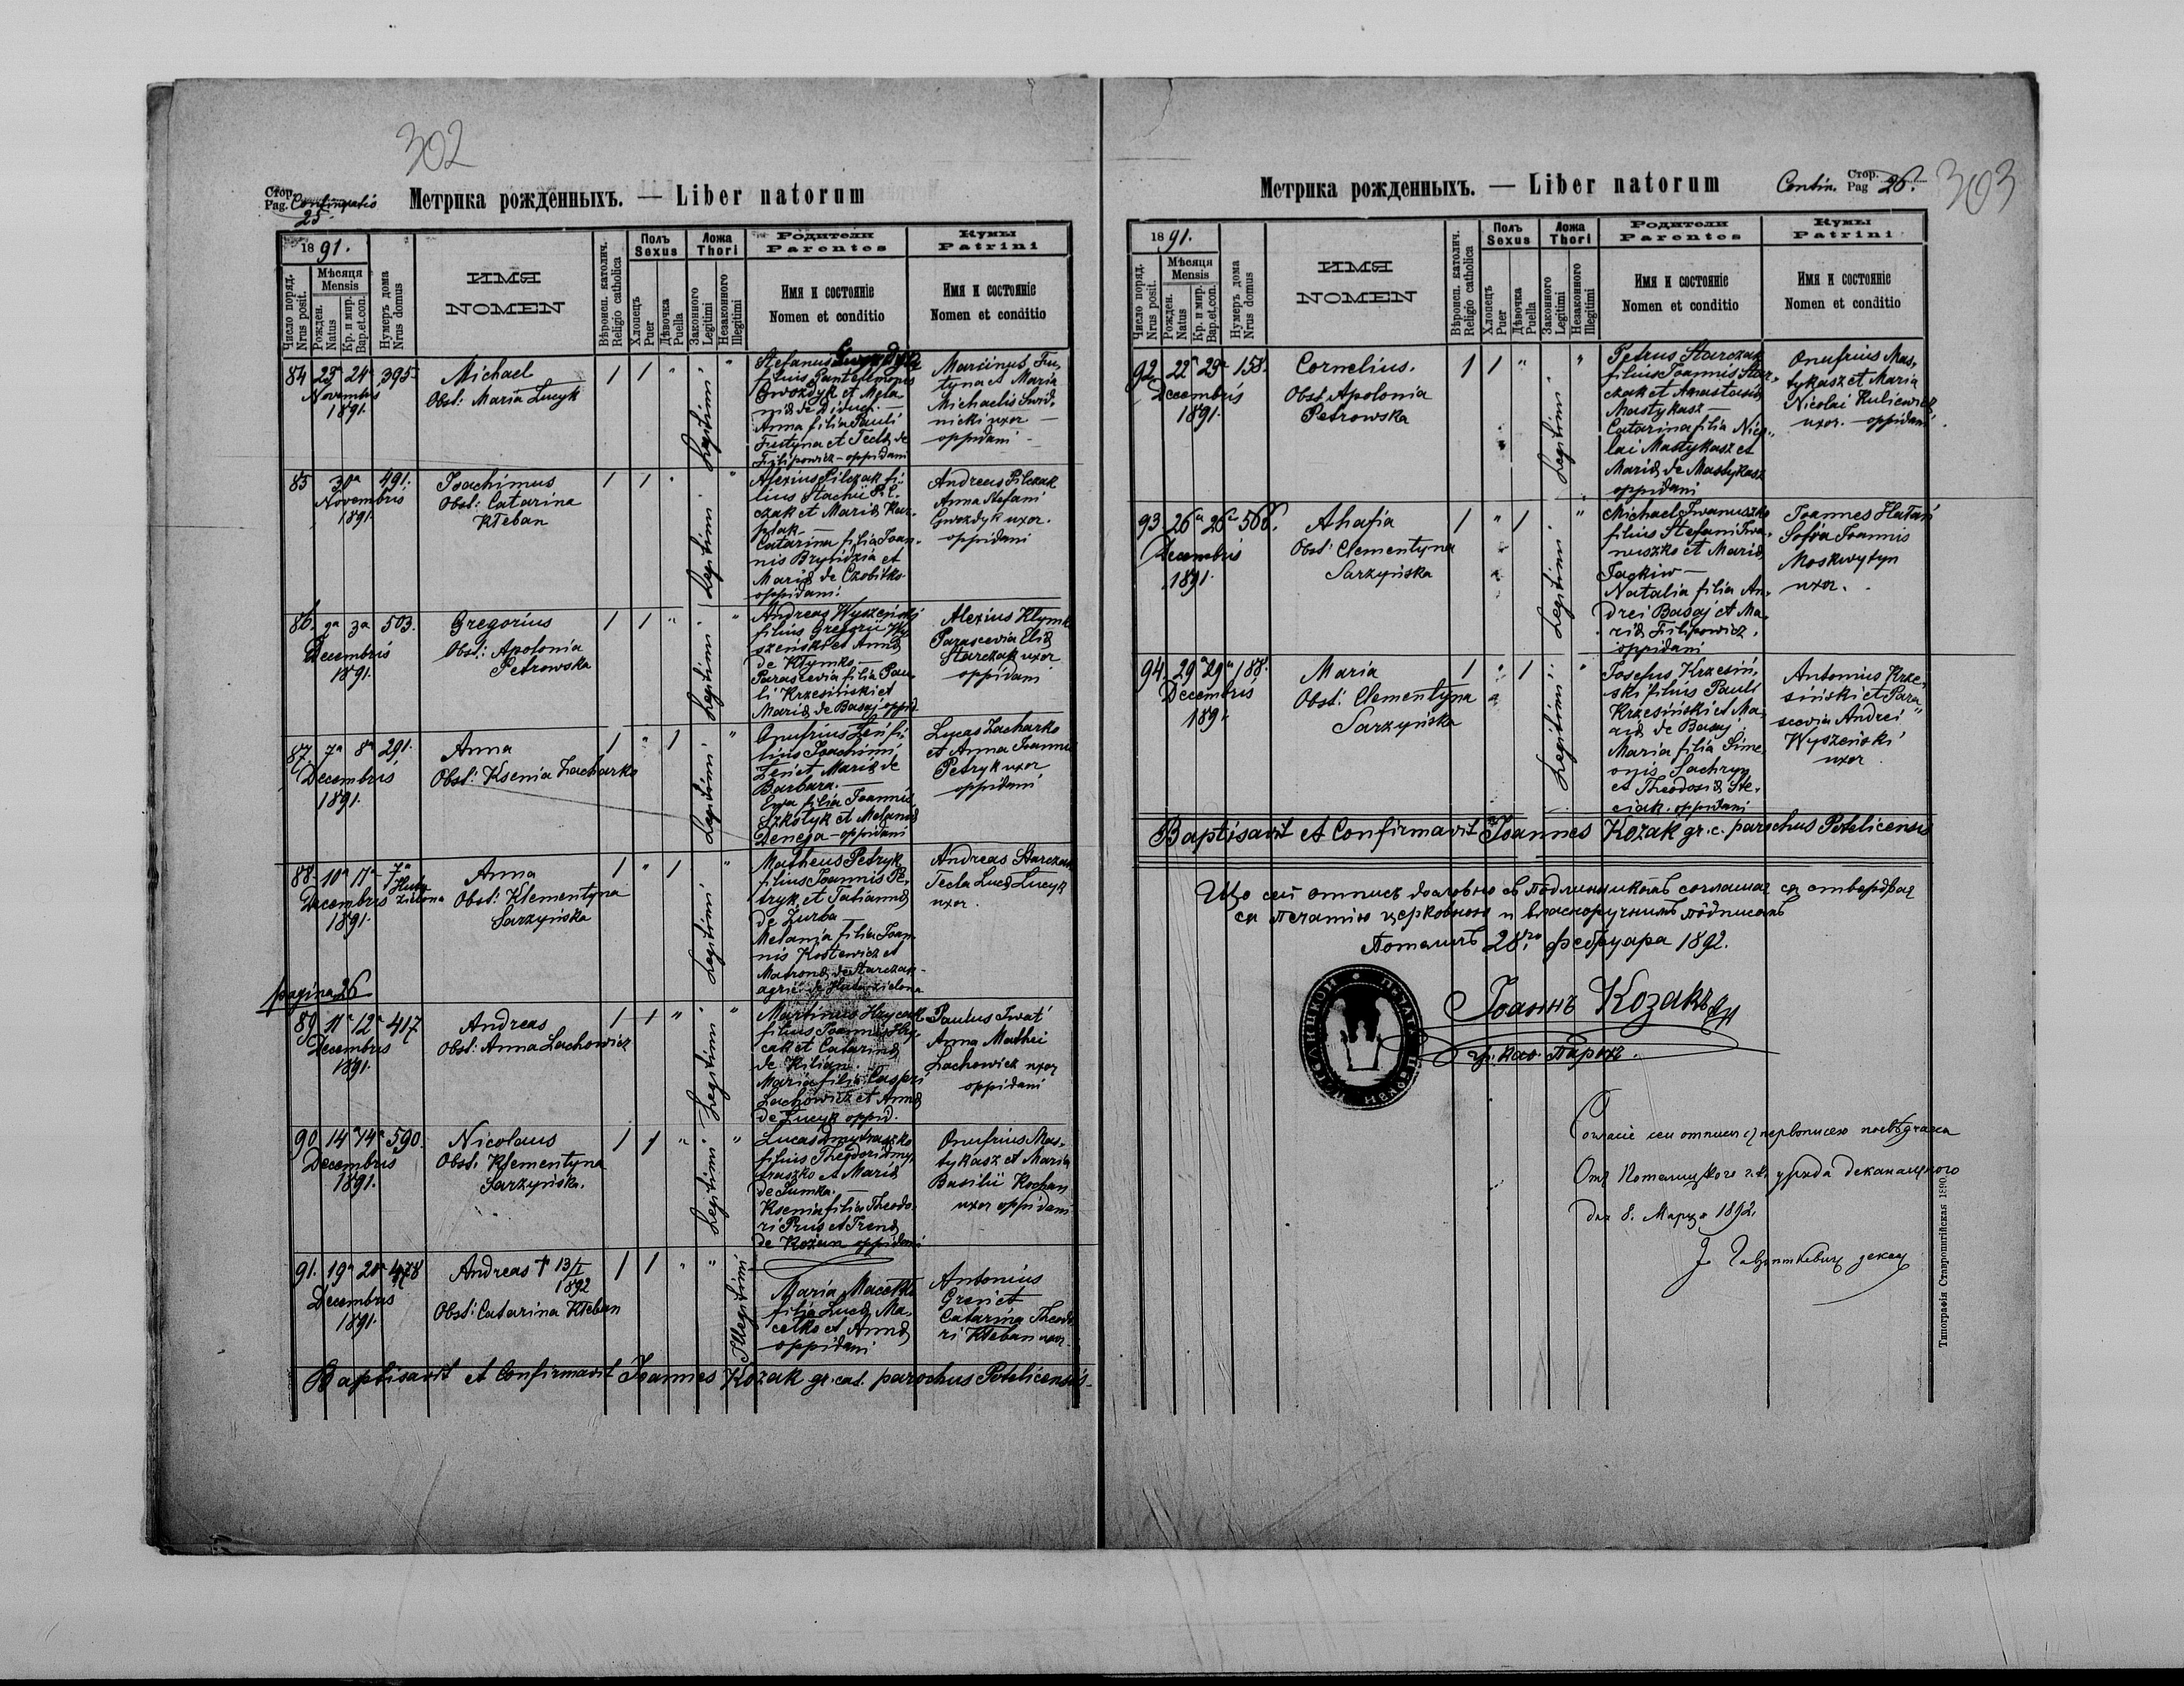 302
Стор.
Pag. Continuatio
25.
Метрика рожденныхъ. — Liber natorum
1891.
Число поряд.
Nrus posit.
Мѣсяця
Mensis
Рожден.
Natus
Кр. и мир.
Bap.et.con.
Нумеръ дома
Nrus domus
ИМЯ
NOMEN
Вѣроисп. католич.
Religio catholica
Полъ
Sexus
Хлопецъ
Puer
Дѣвочка
Puella
Ложа
Thori
Законного
Legitimi
Незаконного
Illegitimi
Родители
Parentes
Имя и состоянiе
Nomen et conditio
Кумы
Patrini
Имя и состоянiе
Nomen et conditio
84 23 24 395
Novembris
1891.
Michael
Obst: Maria Lucyk
1 1 "
Legitimi
"
Stefanus Gwozdyk
filius Pantelemonis
Gwozdyk et Mela-
niæ de Diduch. —
Anna filia Pauli
Fustyna et Teclæ de
Filipowicz – oppidani
Marcinus Fus-
tyna et Maria
Michaelis Swid-
nicki uxor —
oppidani
85 30a 491.
Novembris
1891.
Joachimus
Obst: Catarina
Kłeban
1 1 "
Legitimi
"
Alexius Pilczak fi-
lius Stachii Pil-
czak et Mariæ
Catarina filia Joan-
nis Brytidzia et
Mariæ de Czobitko
oppidani.
Andreas Pilczak
Anna Stefani
Gwozdyk uxor.
oppidani
86. 2a 3a 503.
Decembris
1891.
Gregorius
Obst: Apolonia
Petrowska
1 1 "
Legitimi
"
Andreas Wyszeński
filius Gregorii Wy-
szeński et Annæ
de Kłymko —
Parascevia filia Pau-
li Krzesiński et
Mariæ de Basaj oppid.
Alexius Klymko
Parascevia Eliæ
Starczak uxor
oppidani
87. 7a 8a 291.
Decembris
1891.
Anna
Obst: Ksenia Zacharko
1 " 1
Legitimi
"
Onufrius Zeń fi-
lius Joachimi
Zeń et Mariæ de
Barbara. —
Eva filia Joannis
Szkolyk et Melaniæ
Denega – oppidani
Lucas Zacharko
et Anna Joannis
Petryk uxor
oppidani
88. 10a 11a 7a
Huta
zielona
Decembris
1891.
Anna
Obst: Klementyna
Sarzyńska
1 " 1
Legitimi
"
Matheus Petryk
filius Joannis Pe-
tryk et Tatiannæ
de Zurba —
Melania filia Joan-
nis Kostewicz et
Matronæ de Starczak
agric. de Huta zielona
Andreas Starczak
Tecla Lucæ Lucyk
uxor.
pagina 26
89 11a 12a 417
Decembris
1891.
Andreas
Obst: Anna Lachowicz
1 1 "
Legitimi
"
Martinus Hrycak
filius Joannis Hry-
cak et Catarinæ
de Kilian.
Maria filia Caspri
Lachowicz et Annæ
de Lucyk oppid.
Paulus Iwat
Anna Mathei
Lachowicz uxor
oppidani
90 14a 14a 590.
Decembris
1891.
Nicolaus
Obst: Klementyna
Sarzyńska.
1 1 "
Legitimi
"
Lucas Dmytraszko
filius Theodori Dmy-
traszko et Mariæ
de Sumka. —
Ksenia filia Theodo-
ri Prus et Irenæ
de Kożan oppidani
Onufrius Mas-
tykasz et Maria
Basilii Kochan
uxor oppidani
91. 19a 20a 478
Decembris
1891.
Andreas † 13/I
1892
Obst: Catarina Kłeban
1 1 "
"
Illegitimi
Maria Macełko
filia Lucæ Ma-
cełko et Annæ
oppidani
Antonius
Greń et
Catarina Theodo-
ri Kłeban uxor.
Baptisavit et Confirmavit Joannes Kozak gr. cat. parochus Potelicensis
Метрика рожденныхъ. — Liber natorum
Contin. Стор.
Pag 26.
303
1891.
Число поряд.
Nrus posit.
Мѣсяця
Mensis
Рожден.
Natus
Кр. и мир.
Bap.et.con.
Нумеръ дома
Nrus domus
ИМЯ
NOMEN
Вѣроисп. католич.
Religio catholica
Полъ
Sexus
Хлопецъ
Puer
Дѣвочка
Puella
Ложа
Thori
Законного
Legitimi
Незаконного
Illegitimi
Родители
Parentes
Имя и состоянiе
Nomen et conditio
Кумы
Patrini
Имя и состоянiе
Nomen et conditio
92 22a 23a 158.
Decembris
1891.
Cornelius.
Obst. Apolonia
Petrowska
1 1 "
Legitimi
"
Petrus Starczak
filius Joannis Star-
czak et Anastasiæ
Mastykasz —
Catarina filia Nico-
lai Mastykasz et
Mariæ de Mastykasz
oppidani
Onufrius Mas-
tykasz et Maria
Nicolai Kuliewicz
uxor. — oppidani.
93. 26a 26a 568.
Decembris
1891.
Ahafia
Obst: Clementyna
Sarzyńska
1 " 1
Legitimi
"
Michael Iwanuszko
filius Stefani Iwa-
nuszko et Mariæ
Jackiw —
Natalia filia An-
drei Basaj et Ma-
riæ Filipowicz.
oppidani
Joannes Hatań
Sofia Joannis
Moskwytyn
uxor.
94. 29a 29a 188.
Decembris
1891.
Maria
Obst: Clementyna
Sarzyńska
1 " 1
Legitimi
"
Josefus Krzesiń-
ski filius Pauli
Krzesiński et Ma-
riæ de Basaj
Maria filia Sime-
onis Sachryn
et Theodosiæ Ste-
ciak. oppidani
Antonius Krze-
siński et Para-
scevia Andrei
Wyszeński
uxor
Baptisavit et Confirmavit Joannes Kozak gr. c. parochus Potelicensis
Що сей отписъ дословно съ подлинникомъ соглашає ся стверджає
ся печатію церковною и власноручнымъ подписомъ
Потеличъ 28го фебруара 1892.
Іоаннъ Козакъ
гр. кат. парохъ.
Согласіе сеи отписи съ первописею посвѣдчаєся
Отъ Потелицкого г. к. уряда деканального
дня 8. Марця 1892.
декан
Типографія Ставропигійская 1890.